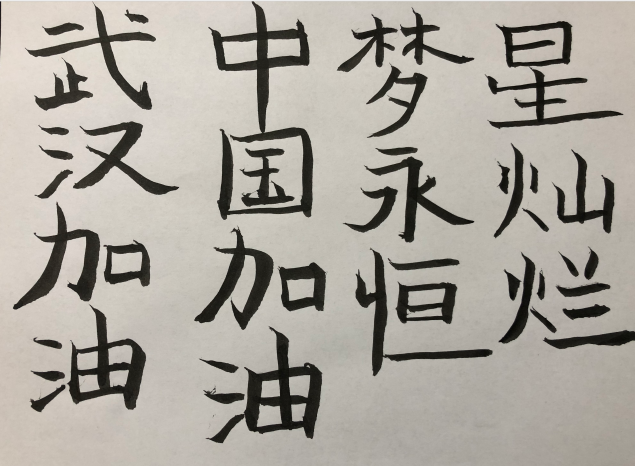 星灿烂
梦永恒
中国加油
武汉加油